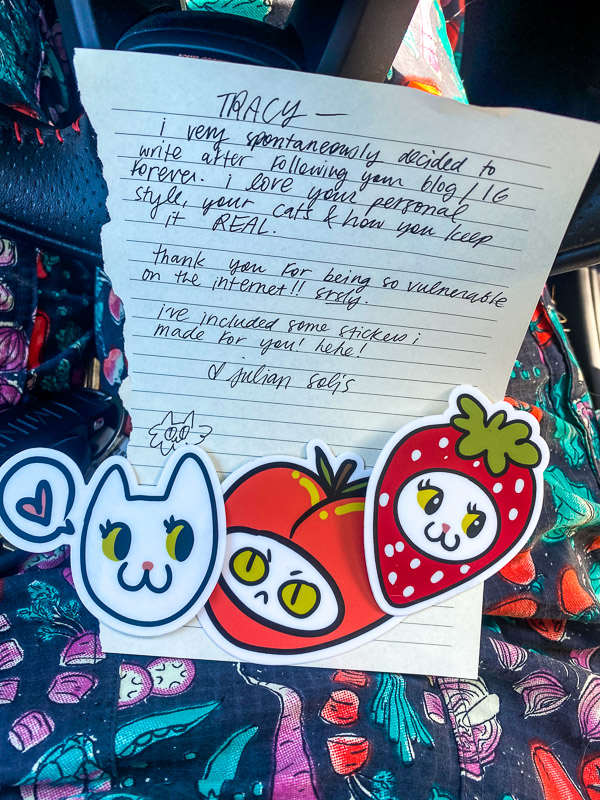 TRACY —
i very spontaneously decided to
write after following your blog/IG
forever. i love your personal
style, your cats & how you keep
it REAL.
thank you for being so vulnerable
on the internet!! srsly.
i've included some stickers i
made for you! hehe!
♡ julian solis